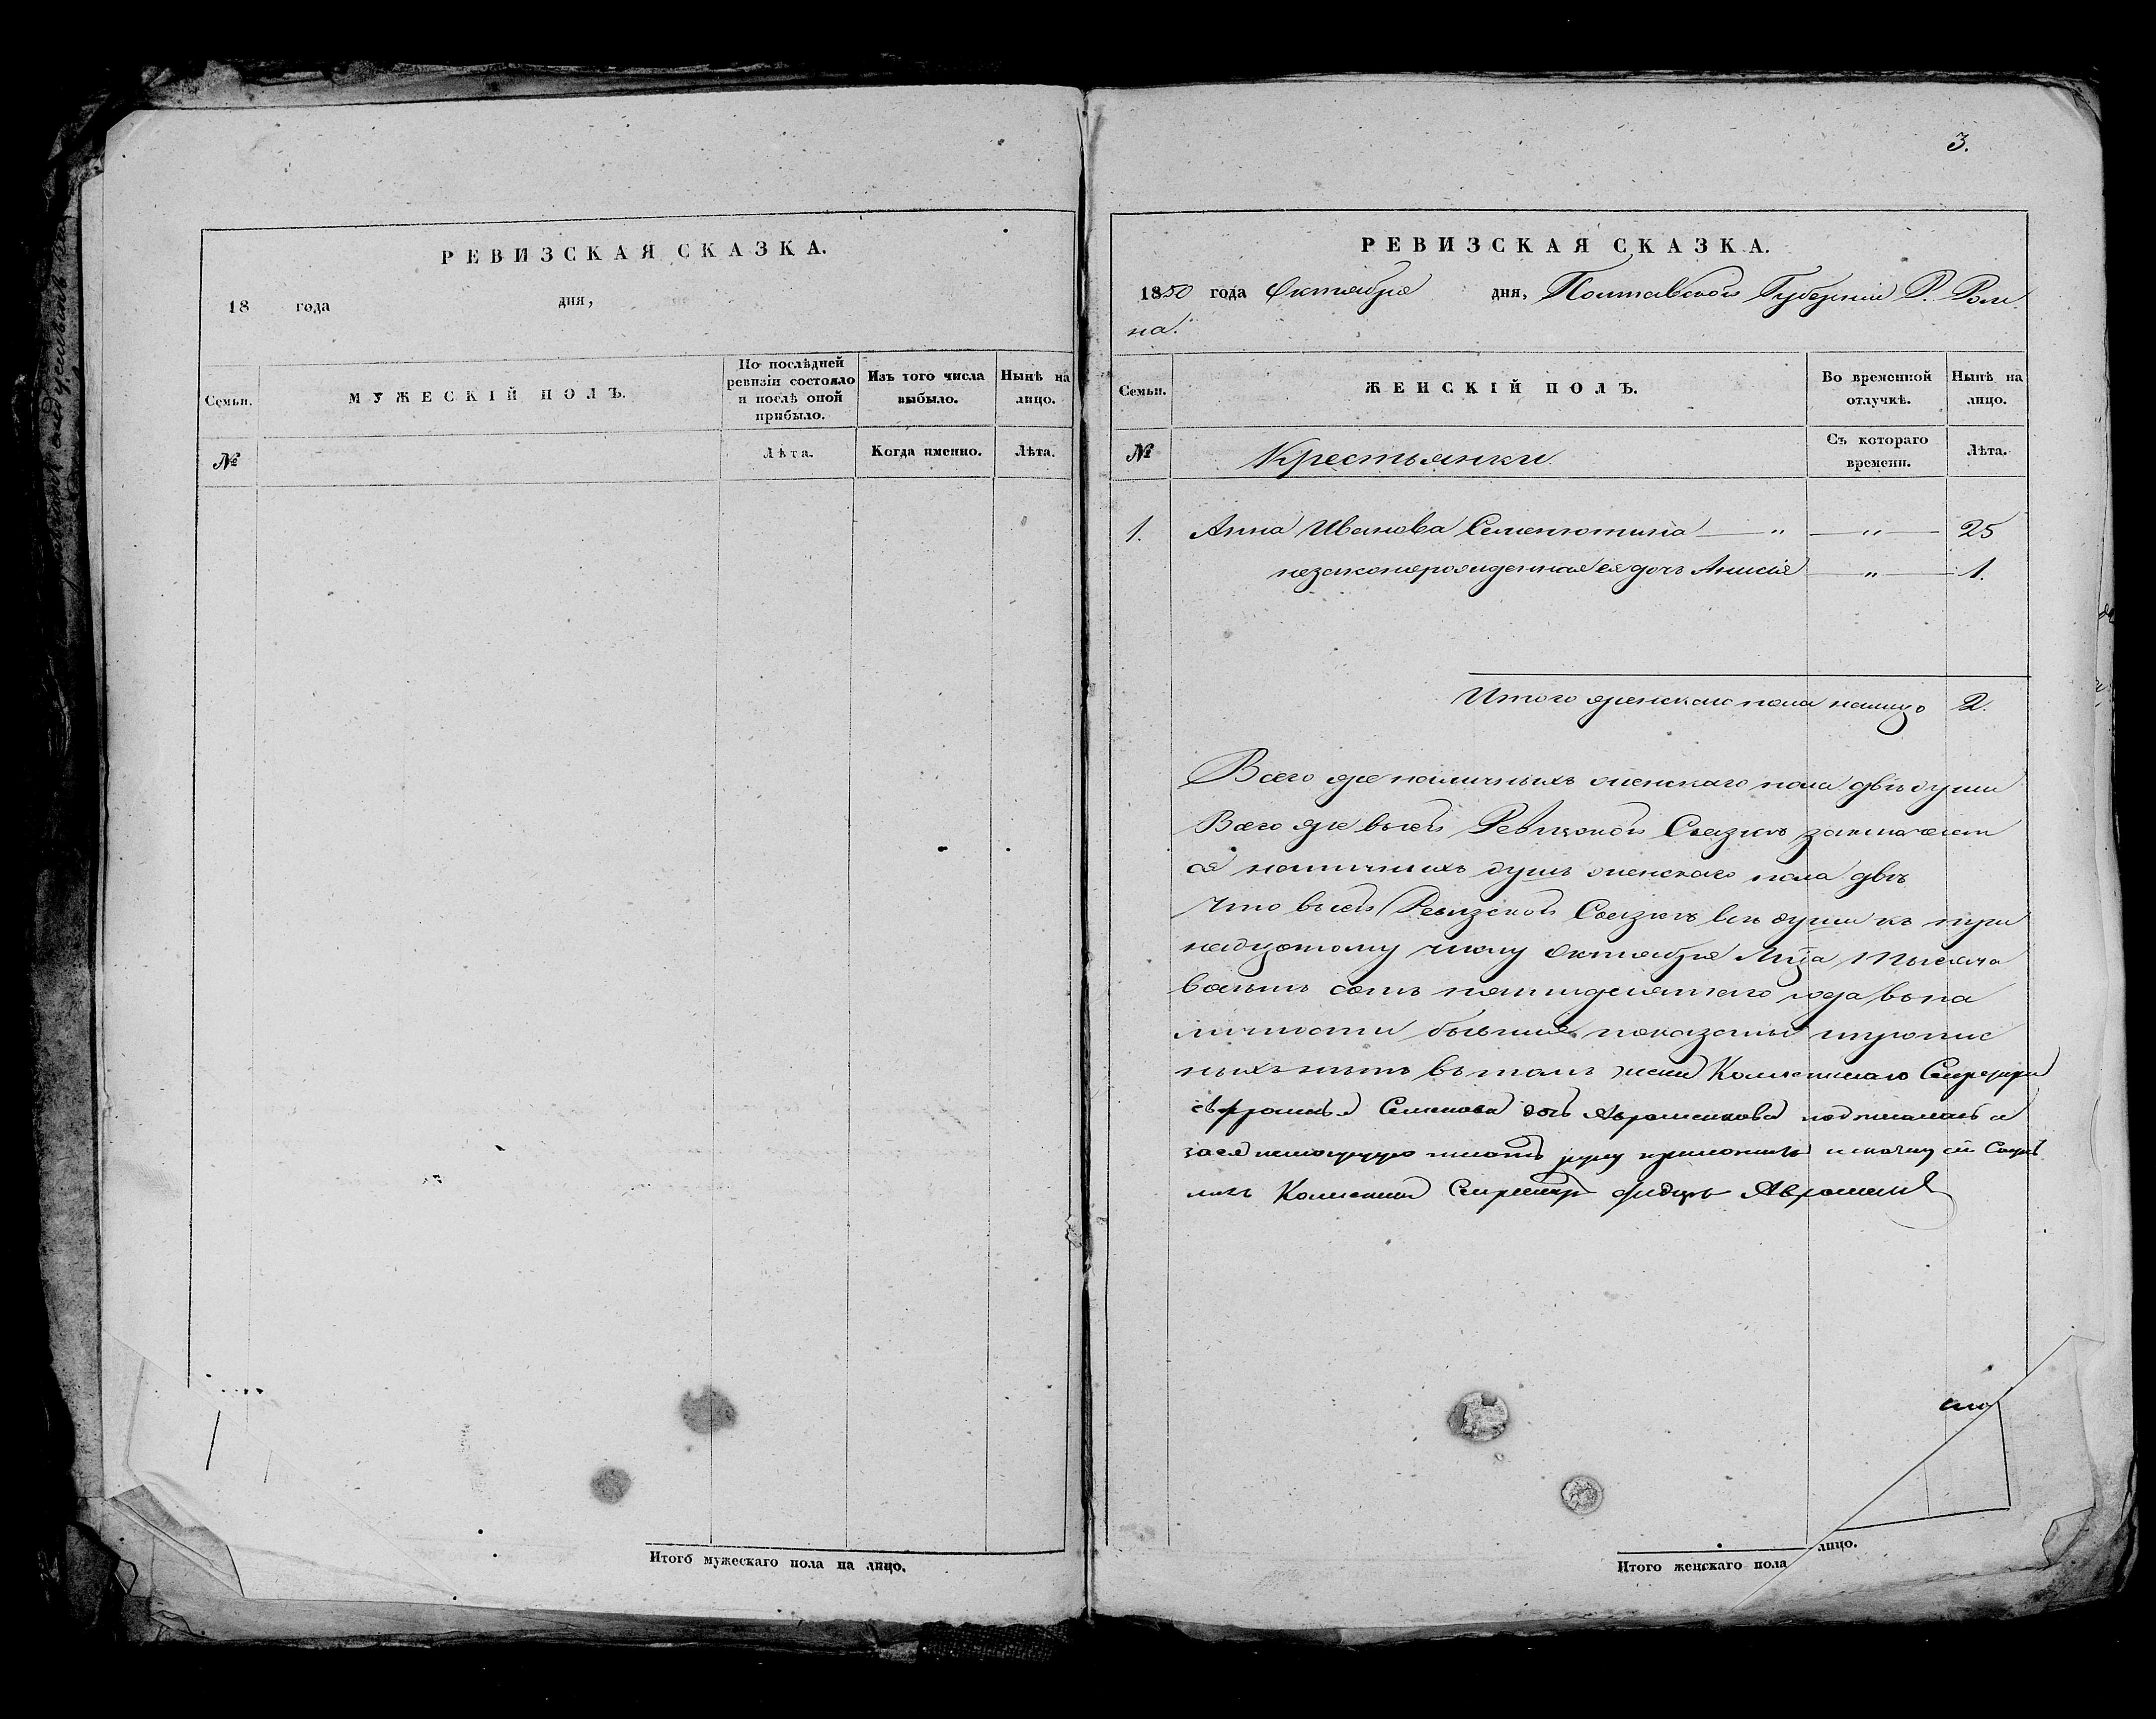 3.
РЕВИЗСКАЯ СКАЗКА.
18 года дня,
Семьи.
МУЖЕСКІЙ ПОЛЪ.
По послѣдней ревизіи состояло и послѣ оной прибыло.
Изъ того числа выбыло.
Нынѣ на лицо.
№
Лѣта.
Когда именно.
Лѣта.
Итого мужескаго пола на лицо.
РЕВИЗСКАЯ СКАЗКА.
1850 года Октября дня, Полтавской Губерніи Г. Ром
на.
Семьи.
ЖЕНСКІЙ ПОЛЪ.
Во временной отлучкѣ.
Нынѣ на лицо.
№
Крестьянки.
Съ котораго времени.
Лѣта.
1. Анна Иванова Семенютина — " — " — 25
незаконнорожденная ея дочь Анисія — " — 1.
Итого женскаго пола налицо 2.
Всего же наличныхъ женскаго пола двѣ души
Всего же въ сей Ревизской Сказкѣ заключает
ся наличныхъ душъ женскаго пола двѣ
Что въ сей Ревизской Сказкѣ всѣ души къ три
надцатому числу Октября Мца Тысяча
восемь сотъ пятидесятаго года въ на
личности бывшія показаны и пропис
ныхъ нѣтъ въ томъ жена Коллежскаго Секретаря
Семенова дочь Авраменкова подписалась а
за ея писать руку приложилъ и
Коллежский Секретарь Федоръ Авраменко
лицо.
Итого женскаго пола